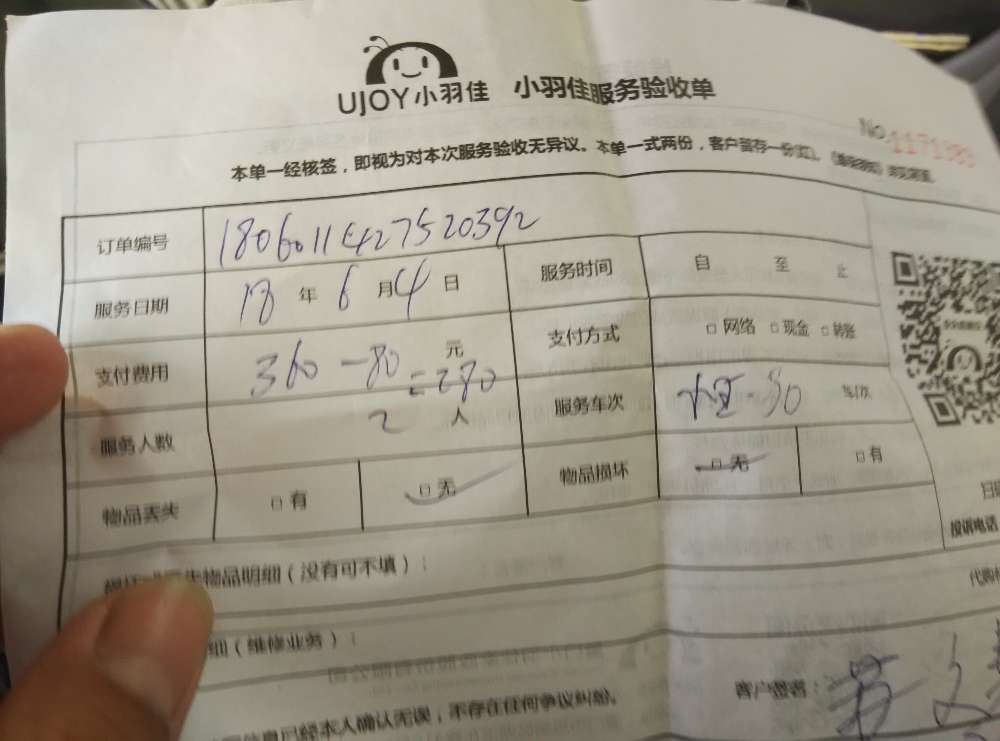 UJOY小羽佳 小羽佳服务验收单
No 1171983
本单一经核签，即视为对本次服务验收无异议。本单一式两份，客户留存一份
订单编号 1806011427520392
服务日期 18 年 6 月 4 日 服务时间 自 至 止
支付费用 360-80=280 元 支付方式 □ 网络 □ 现金 □ 转账
服务人数 2 人 服务车次 车/次
物品丢失 □ 有 □ 无 物品损坏 □ 无 □ 有
投诉电话
物品明细（没有可不填）：
细（维修业务）：
客户签署：
已经本人确认无误，不存在任何争议纠纷。